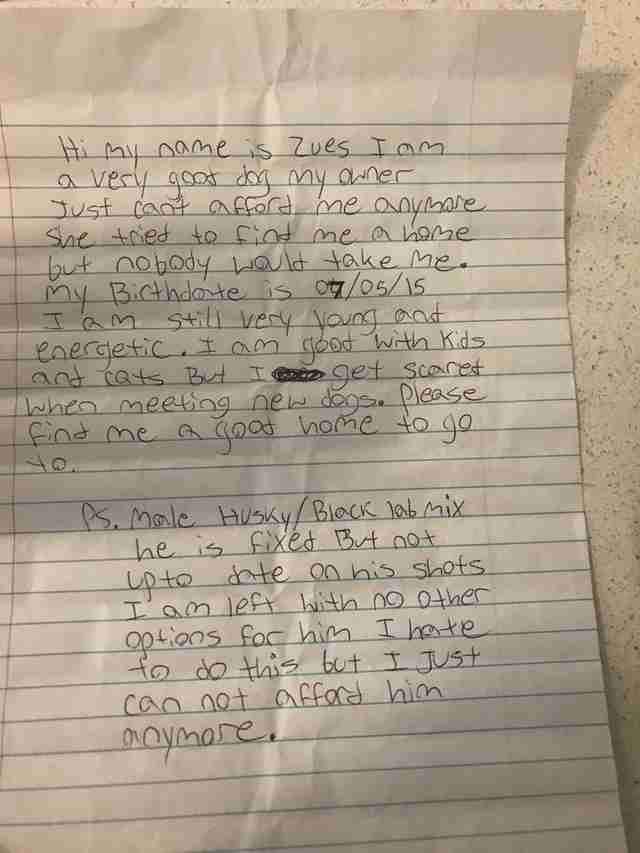 Hi my name is Zues I am
a very good dog my owner
Just can't afford me anymore
She tried to find me a home
but nobody would take me.
my Birthdate is 07/05/15
I am still very young and
energetic. I am good with Kids
and cats But I get scared
when meeting new dogs. Please
find me a good home to go
to.
Ps. Male Husky/Black lab mix
he is fixed But not
up to date on his shots
I am left with no other
options for him I hate
to do this but I Just
can not afford him
anymore.